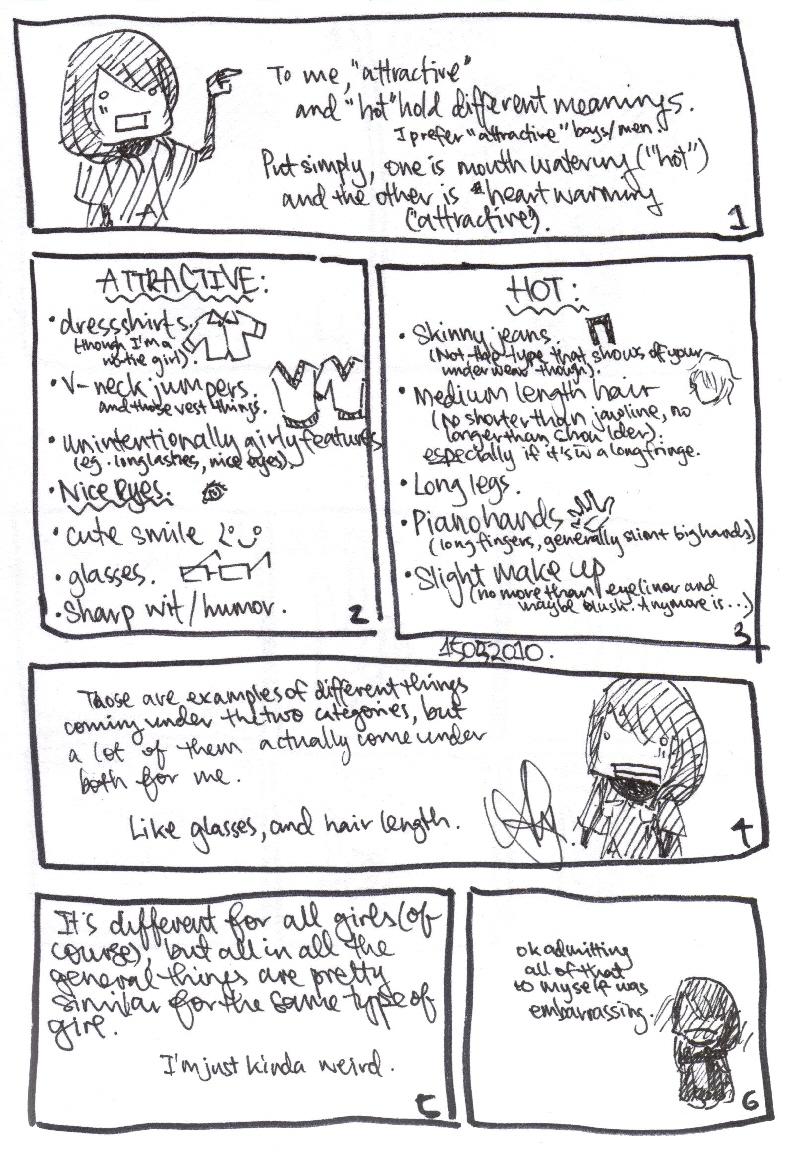 To me, "attractive"
and "hot" hold different meanings.
I prefer "attractive" boys/men.
Put simply, one is mouth watering ("hot")
and the other is heart warming
("attractive").
1
ATTRACTIVE:
• dressshirts.
(though I'm a
no-tie girl).
• V-neck jumpers.
and those vest things.
• unintentionally girly features
(eg. long lashes, nice eyes).
• Nice eyes.
• cute smile
• glasses.
• Sharp wit/humor.
2
HOT:
• Skinny jeans.
(Not the type that shows of your
underwear though).
• Medium length hair
(no shorter than jawline, no
longer than shoulder).
especially if it's in a long fringe.
• Long legs.
• Piano hands
(long fingers, generally slim + big hands)
• Slight make up
(no more than eyeliner and
maybe blush. Anymore is...)
3
15032010.
Those are examples of different things
coming under the two categories, but
a lot of them actually come under
both for me.
Like glasses, and hair length.
4
It's different for all girls (of
course), but all in all the
general things are pretty
similar for the same type of
girl.
I'm just kinda weird.
5
ok admitting
all of that
to myself was
embarrassing.
6